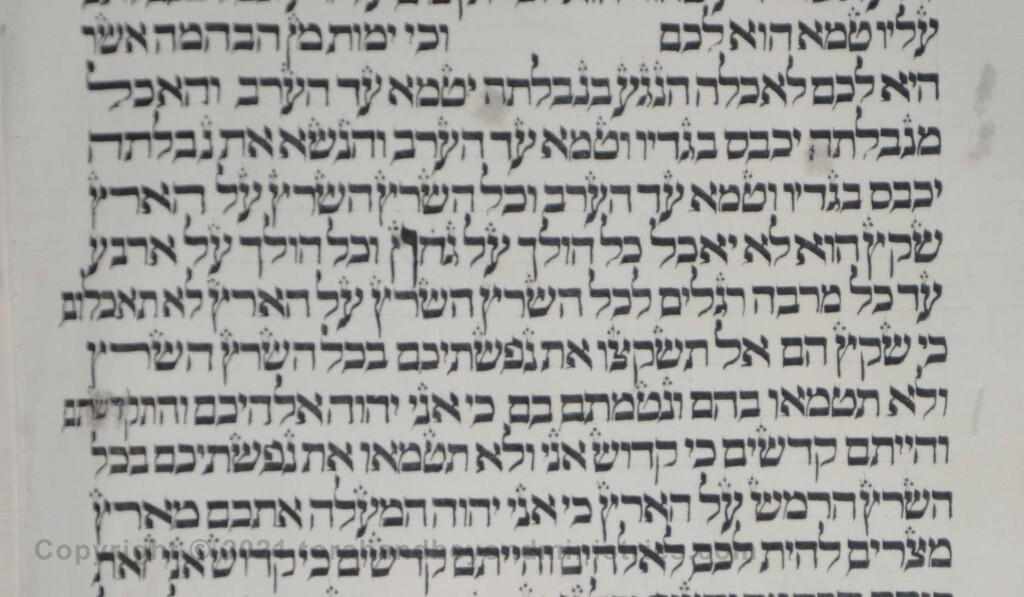 עליו טמא הוא לכם וכי ימות מן הבהמה אשר
היא לכם לאכלה הנגע בנבלתה יטמא עד הערב והאכל
מנבלתה יכבס בגדיו וטמא עד הערב והנשא את נבלתה
יכבס בגדיו וטמא עד הערב וכל השרץ השרץ על הארץ
שקץ הוא לא יאכל כל הולך על גחון וכל הולך על ארבע
עד כל מרבה רגלים לכל השרץ השרץ על הארץ לא תאכלום
כי שקץ הם אל תשקצו את נפשתיכם בכל השרץ השרץ
ולא תטמאו בהם ונטמתם בם כי אני יהוה אלהיכם והתקדשתם
והייתם קדשים כי קדוש אני ולא תטמאו את נפשתיכם בכל
השרץ הרמש על הארץ כי אני יהוה המעלה אתכם מארץ
מצרים להית לכם לאלהים והייתם קדשים כי קדוש אני זאת
Copyright © 2021 torahandbeyondministries.com